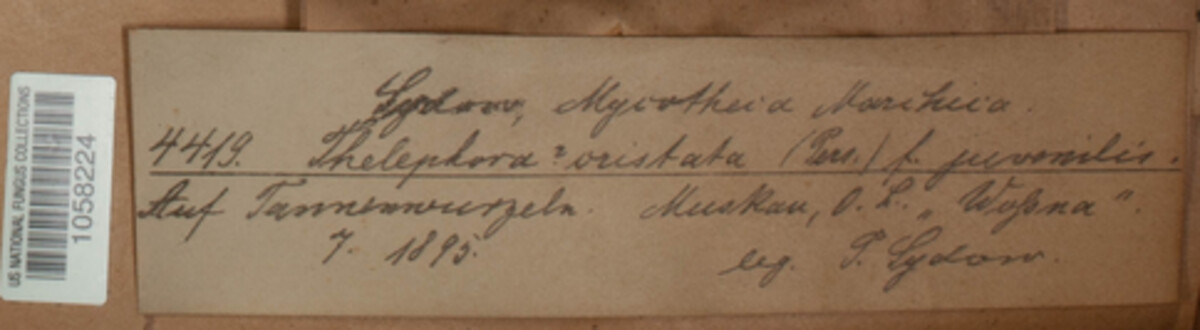 US NATIONAL FUNGUS COLLECTIONS
1058224
Sydow, Mycotheca Marchica.
4419. Thelephora cristata (Pers.) f. juvenilis.
Auf Tannenwurzeln. Muskau, O. L. „Woßna“.
7. 1895.
leg. P. Sydow.